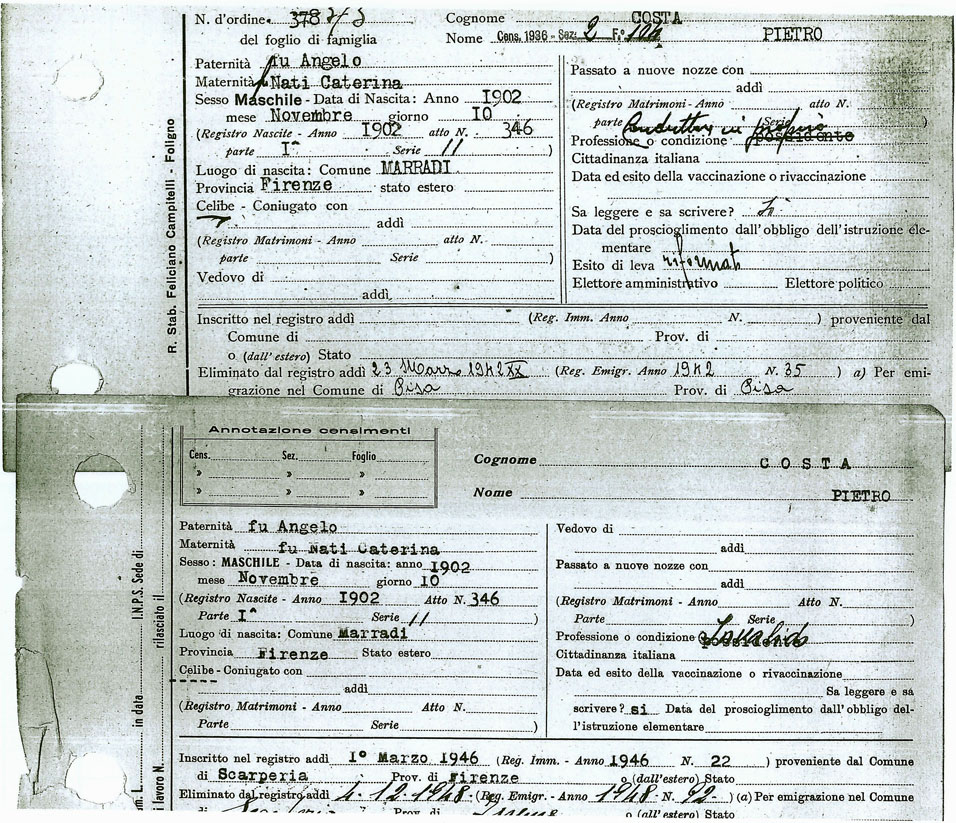 N. d'ordine. 378
Cognome COSTA
del foglio di famiglia
Nome Cens. 1936 - Sez. 2 F.° 104 PIETRO
Paternità fu Angelo
Maternità Nati Caterina
Sesso Maschile - Data di Nascita: Anno 1902
mese Novembre giorno 10
(Registro Nascite - Anno 1902 atto N. 346
parte I^ Serie //)
Luogo di nascita: Comune MARRADI
Provincia Firenze stato estero
Celibe - Coniugato con
addì
(Registro Matrimoni - Anno atto N.
parte Serie )
Vedovo di
addì
Passato a nuove nozze con
addì
(Registro Matrimoni - Anno atto N.
parte Serie
Professione o condizione possidente
Conduttore in proprio
Cittadinanza italiana
Data ed esito della vaccinazione o rivaccinazione
Sa leggere e sa scrivere?
Data del proscioglimento dall'obbligo dell'istruzione ele-
mentare
Esito di leva riformato
Elettore amministrativo Elettore politico
R. Stab. Feliciano Campitelli - Foligno
Inscritto nel registro addì (Reg. Imm. Anno N. ) proveniente dal
Comune di Prov. di
o (dall'estero) Stato
Eliminato dal registro addì 23 Marzo 1942 XX (Reg. Emigr. Anno 1942 N. 35 ) a) Per emi-
grazione nel Comune di Pisa Prov. di Pisa
Annotazione censimenti
Cens. Sez. Foglio
» » »
» » »
Cognome COSTA
Nome PIETRO
Paternità fu Angelo
Maternità fu Nati Caterina
Sesso: MASCHILE - Data di nascita: anno 1902
mese Novembre giorno 10
(Registro Nascite - Anno 1902 Atto N. 346
Parte I^ Serie //)
Luogo di nascita: Comune Marradi
Provincia Firenze Stato estero
Celibe - Coniugato con
addì
(Registro Matrimoni - Anno Atto N.
Parte Serie )
Vedovo di
addì
Passato a nuove nozze con
addì
(Registro Matrimoni - Anno Atto N.
Parte Serie )
Professione o condizione possidente
Cittadinanza italiana
Data ed esito della vaccinazione o rivaccinazione
Sa leggere e sa
scrivere? si Data del proscioglimento dall'obbligo del-
l'istruzione elementare
I.N.P.S. Sede di
in data
rilasciato il
i lavoro N.
Inscritto nel registro addì 1° Marzo 1946 (Reg. Imm. - Anno 1946 N. 22 ) proveniente dal Comune
di Scarperia Prov. di Firenze o (dall'estero) Stato
Eliminato dal registro addì 4.12.1948 (Reg. Emigr. - Anno 1948 N. 92 ) (a) Per emigrazione nel Comune
di Prov. di o (dall'estero) Stato